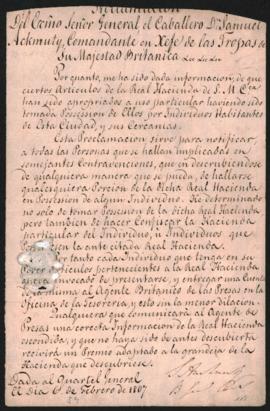 Proclamacion
Del Exmo Señor General el Caballero Dn Samuel
Ackmuty, Comandante en Xefe de las Tropas de
Su Majestad Britanica
Por quanto, me ha sido dada informacion, de que
ciertos Articulos de la Real Hacienda de S. M. Cca
han sido apropriados a uso particular haviendo sido
tomada Possession de Ellos por Individuos Habitantes
de Esta Ciudad, y sus Cercanias.
Esta Proclamacion sirve para notificar
a todas las Personas que se hallan implicadas en
semejantes Contradenciones, que in descubriendose
de qualquiera manera que se pueda, de hallarse
qualesquiera Porcion de la dicha Real Hacienda
en Possession de algun Individuo. He determinado
no solo de tomar Possession de la dicha Real Hacienda
pero tambien de hacer Confiscar la Hacienda
particular del Individuo, u Individuos que
Possessen la ante citada Real Hacienda.
Por tanto cada Individuo que tenga en su
Poder Articulos pertenecientes a la Real Hacienda
de presentarse, y entregar una Cuenta
de como al Agente Britanico de Presas en la
Oficina de la Tesoreria, y esto sin la menor dilacion.
Qualquiera que comunicará al Agente de
Presas una correcta Informacion de la Real Hacienda
escondida, y que no haya sido de antes descubierta
recivirá un Premio adaptado a la grandeja de la
Hacienda que descubriese.
Dada al Quartel General
El Dia 6 de Febrero de 1807